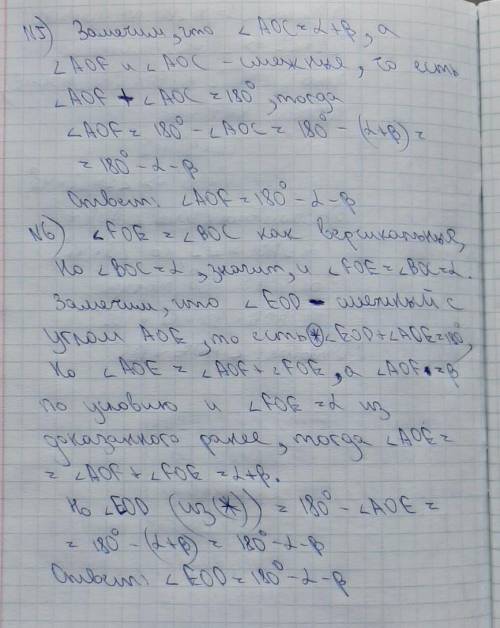 N5) Заметим, что ∠AOC = α+β, а
∠AOF и ∠AOC - смежные, то есть
∠AOF + ∠AOC = 180°, тогда
∠AOF = 180° - ∠AOC = 180° - (α+β) =
= 180° - α - β
Ответ: ∠AOF = 180° - α - β
N6) ∠FOE = ∠BOC как вертикальные,
но ∠BOC = α, значит, и ∠FOE = ∠BOC = α.
Заметим, что ∠EOD - смежный с
углом AOE, то есть (*) ∠EOD + ∠AOE = 180°,
но ∠AOE = ∠AOF + ∠FOE, а ∠AOF = β
по условию и ∠FOE = α из
доказанного ранее, тогда ∠AOE =
= ∠AOF + ∠FOE = α+β.
Но ∠EOD (из (*)) = 180° - ∠AOE =
= 180° - (α+β) = 180° - α - β
Ответ: ∠EOD = 180° - α - β